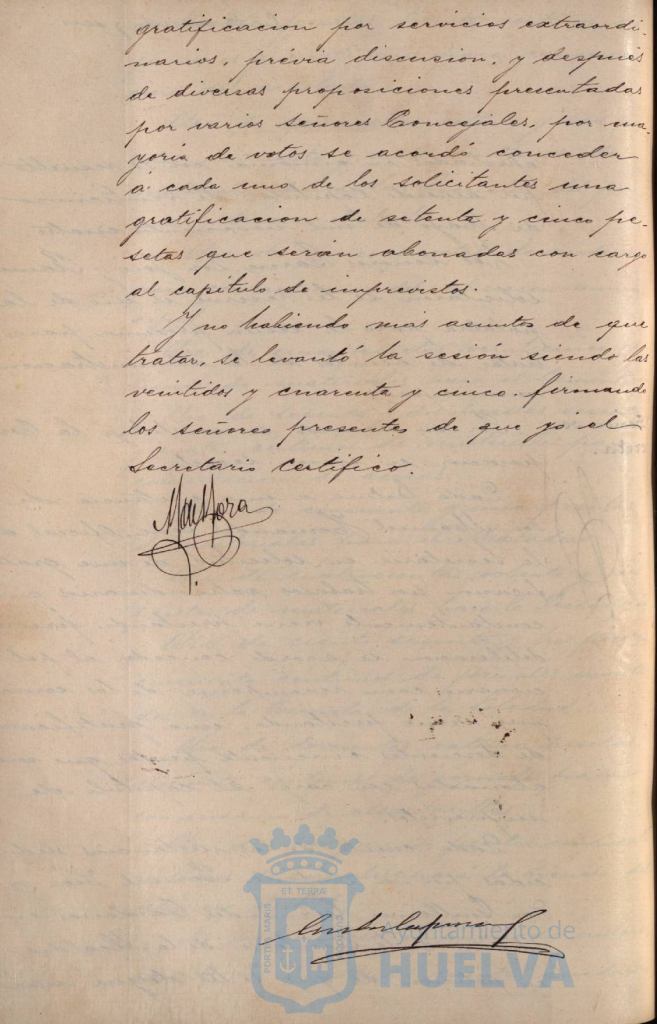 gratificacion por servicios extraordi-
narios, prévia discusion, y después
de diversas proposiciones presentadas
por varios señores Concejales, por ma-
yoria de votos se acordó conceder
á cada uno de los solicitantes una
gratificacion de setenta y cinco pe-
setas que serán abonadas con cargo
al capitulo de imprevistos.
Y no habiendo más asuntos de que
tratar, se levantó la sesión siendo las
veintidos y cuarenta y cinco, firmando
los señores presentes de que yó el
Secretario certifico.
Mora
PORTUS MARIS
ET TERRÆ
CUSTODIA
Ayuntamiento de
HUELVA